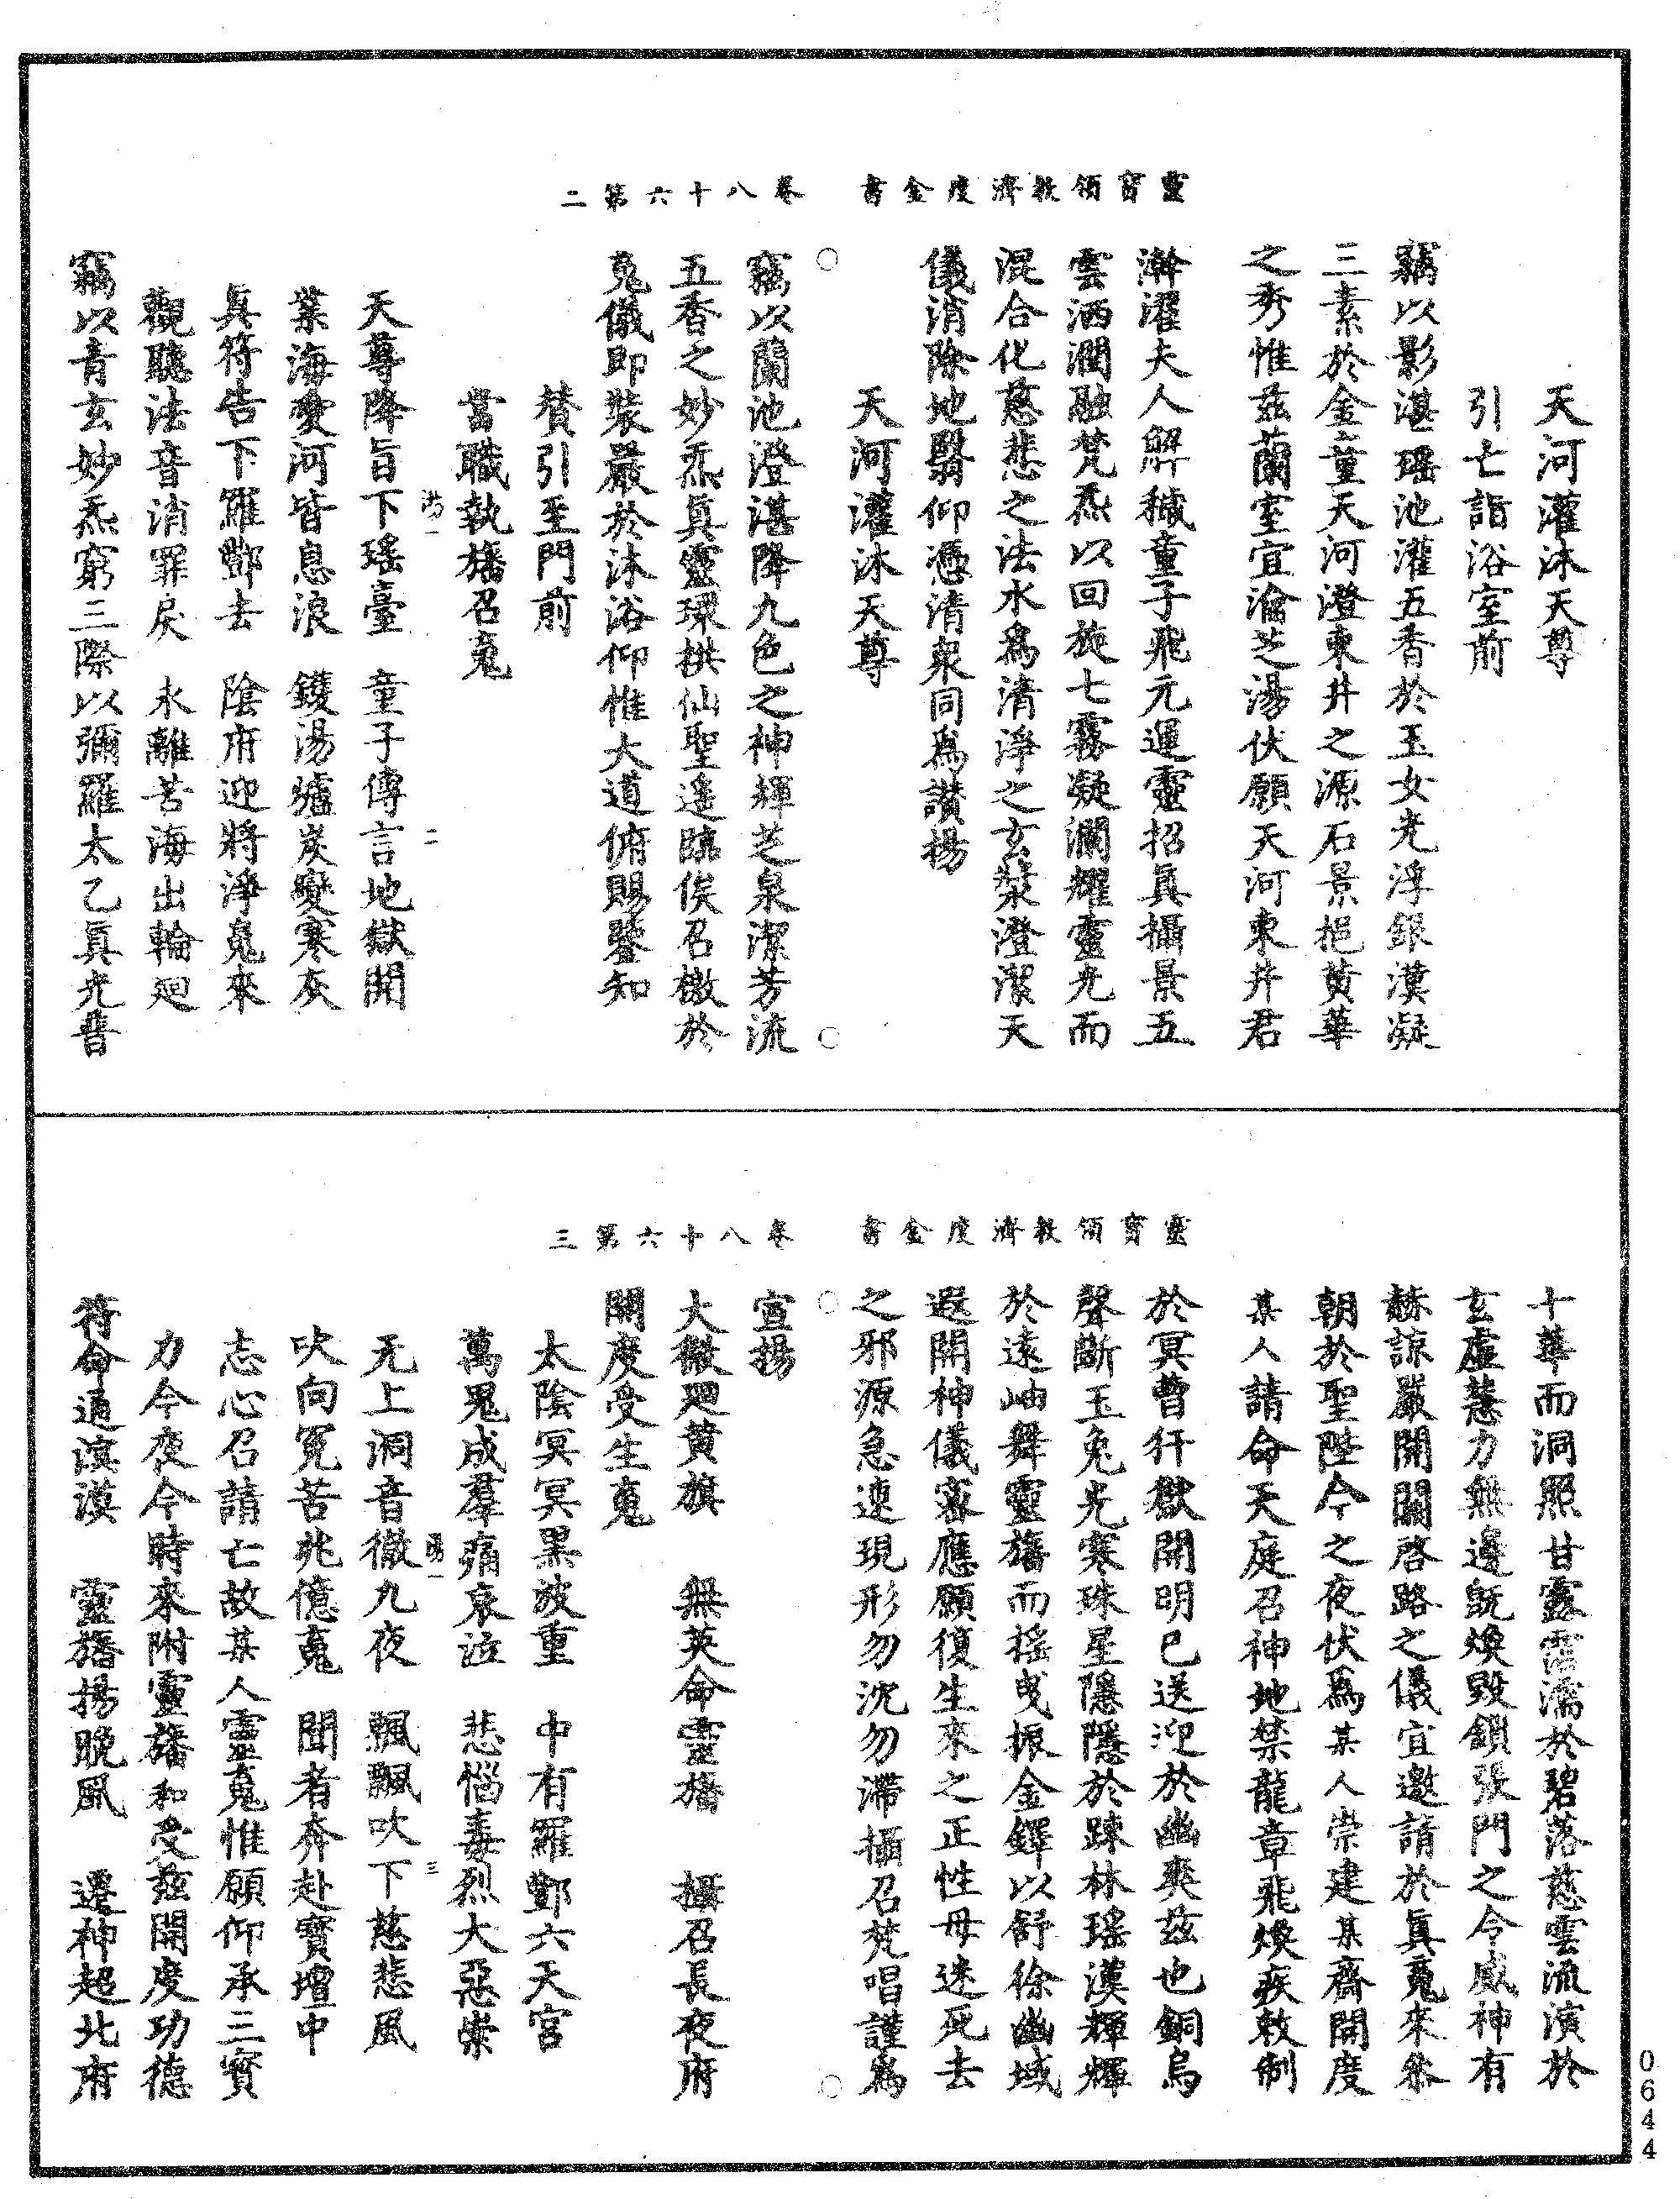 靈寶領教濟度金書　卷八十六第二
天河灌沐天尊
引亡詣浴室前
竊以影湛瑤池灌五香於玉女光浮銀漢凝
三素於金童天河澄東井之源石景挹黃華
之秀惟兹蘭室宜瀹芝湯伏願天河東井君
澣濯夫人解穢童子飛元運靈招眞攝景五
雲洒潤融梵炁以回旋七霧凝瀾耀靈光而
混合化慈悲之法水爲清淨之玄漿澄潔天
儀消除地翳仰憑清衆同爲讃揚
天河灌沐天尊
○　○
竊以蘭池澄湛降九色之神輝芝泉潔芳流
五香之妙炁眞靈環拱仙聖遥臨俟召檄於
䰟儀即裝嚴於沐浴仰惟大道俯賜鑒知
賛引至門前
當職執旛召䰟
二
天尊降旨下瑤臺　童子傳言地獄開
業海愛河皆息浪　鑊湯爐炭變寒灰
眞符告下羅酆去　陰府迎將淨䰟來
觀聽法音消罪戾　永離苦海出輪廻
竊以青玄妙炁窮三際以彌羅太乙眞光普
靈寶領教濟度金書　卷八十六第三
十華而洞照甘露霑濡於碧落慈雲流演於
玄虛慧力無邊旣煥毀鎖張門之令威神有
赫諒嚴開關啓路之儀宜邀請於眞䰟來叅
朝於聖陛今之夜伏爲某人崇建某齋開度
某人請命天庭召神地禁龍章飛煥疾敕制
於冥曹犴獄開明已送迎於幽爽兹也銅烏
聲斷玉兔光寒珠星隱隱於踈林瑤漢輝輝
於遠岫舞靈旛而搖曳振金鐸以舒徐幽域
遐開神儀審應願復生來之正性毋迷死去
之邪源急速現形勿沈勿滯攝召梵唱謹爲
○　○
宣揚
大微廻黃旗　無英命靈旛　攝召長夜府
開度受生䰟
太陰冥冥黑波重　中有羅酆六天宮
萬鬼成羣痛哀泣　悲惱毒烈大惡崇
三
无上洞音徹九夜　飄飄吹下慈悲風
吹向冤苦兆億䰟　聞者奔赴寳壇中
志心召請亡故某人靈䰟惟願仰承三寳
力今夜今時來附靈旛和受兹開度功德
符命通溟漠　靈旛揚晚風　遷神超北府
0644